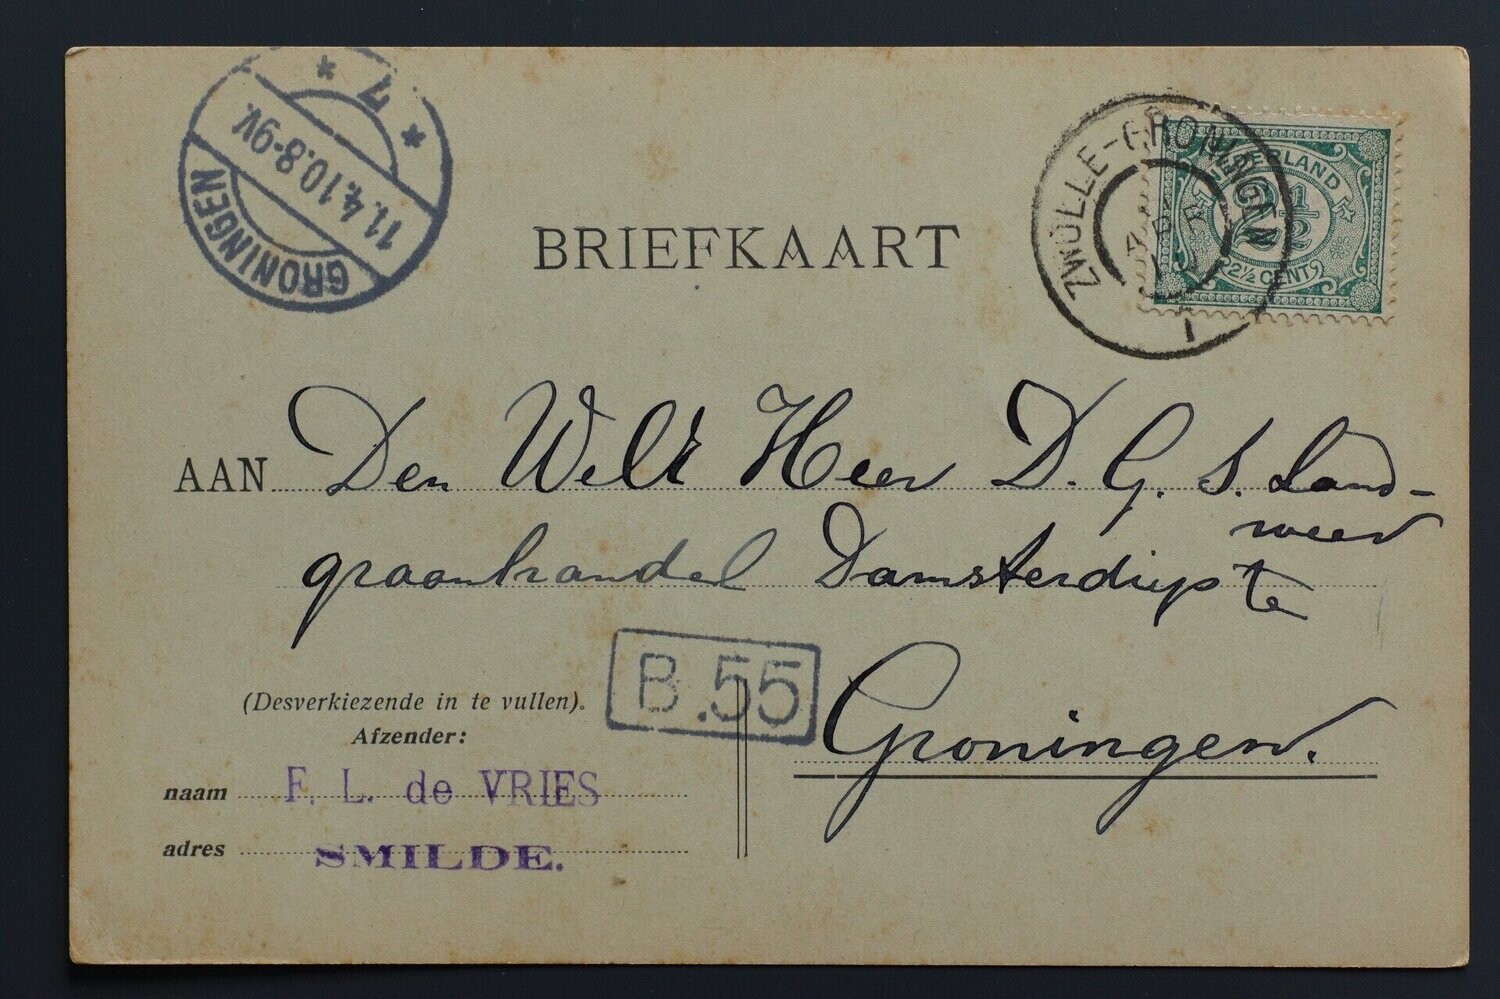 GRONINGEN
11.4.10.8-9V.
* 7 *
ZWOLLE-GRONINGEN
I
NEDERLAND
2½
2½ CENT
BRIEFKAART
AAN Den WelE Heer D. G. S. Land-
weer
graanhandel Damsterdiep te
B.55
Groningen.
(Desverkiezende in te vullen).
Afzender:
naam F. L. de VRIES
adres SMILDE.